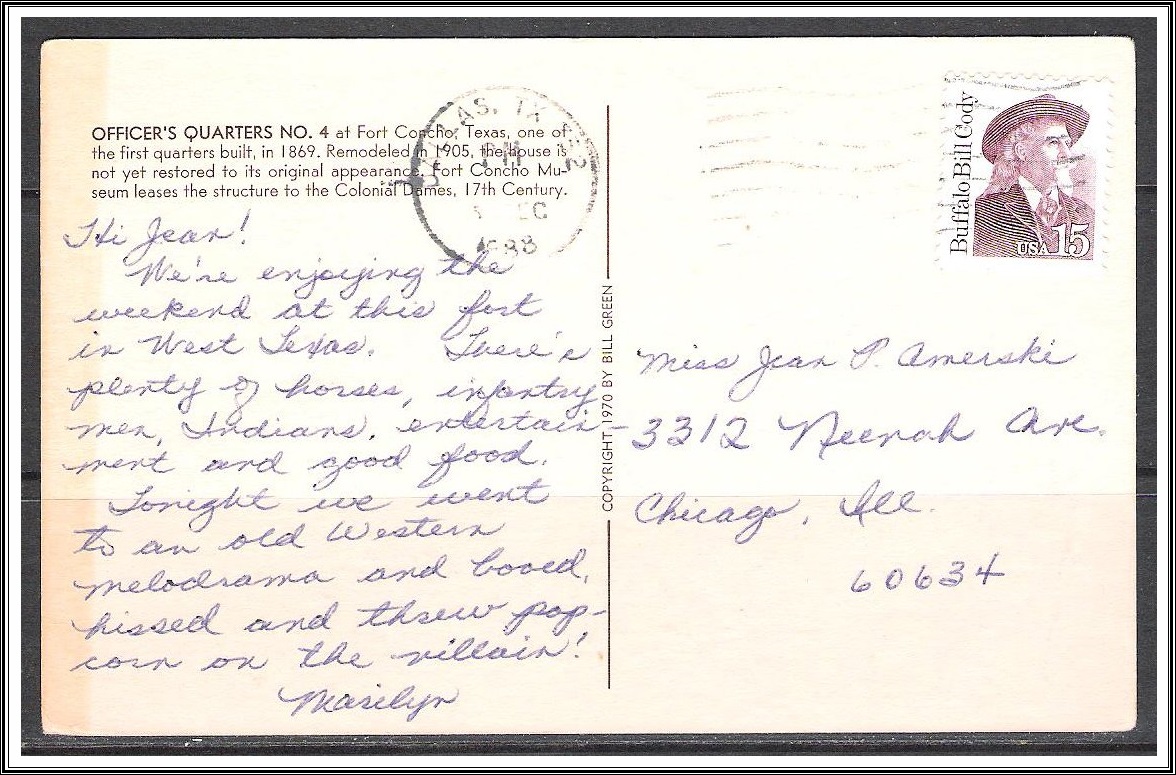 OFFICER'S QUARTERS NO. 4 at Fort Concho, Texas, one of
the first quarters built, in 1869. Remodeled in 1905, the house is
not yet restored to its original appearance. Fort Concho Mu-
seum leases the structure to the Colonial Dames, 17th Century.
Hi Jean!
We're enjoying the
weekend at this fort
in West Texas. There's
plenty of horses, infantry
men, Indians, entertain-
ment and good food.
Tonight we went
to an old Western
melodrama and booed,
hissed and threw pop-
corn on the villain!
Marilyn
COPYRIGHT 1970 BY BILL GREEN
AS, TX
PM
1988
Buffalo Bill Cody
USA 15
Miss Jean P. Amerski
3312 Neenah Ave.
Chicago, Ill.
60634